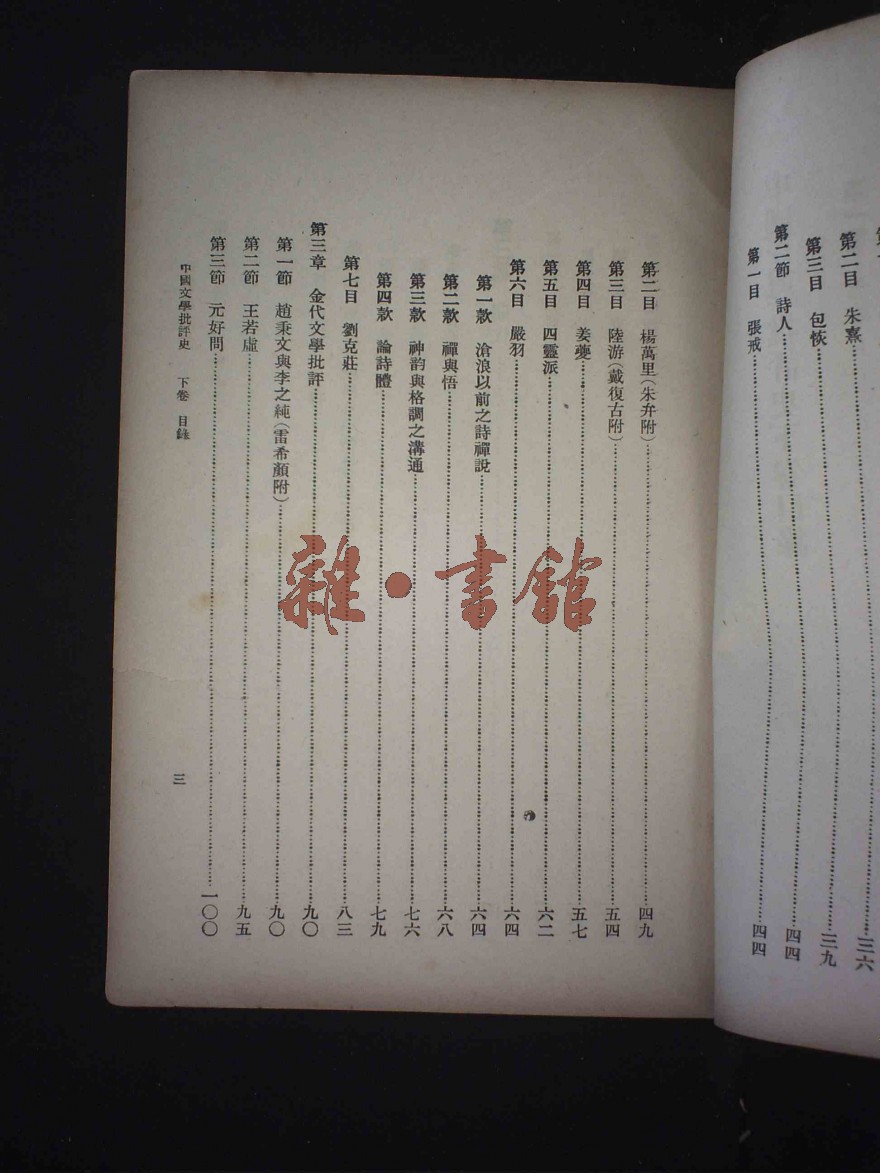 第二目 朱熹……三六
第三目 包恢……三九
第二節 詩人……四四
第一目 張戒……四四
第二目 楊萬里(朱弁附)……四九
第三目 陸游(戴復古附)……五四
第四目 姜夔……五七
第五目 四靈派……六二
第六目 嚴羽……六四
第一款 滄浪以前之詩禪說……六四
第二款 禪與悟……六八
第三款 神韵與格調之溝通……七六
第四款 論詩體……七九
第七目 劉克莊……八三
第三章 金代文學批評……九〇
第一節 趙秉文與李之純(雷希顏附)……九〇
第二節 王若虛……九五
第三節 元好問……一〇〇
中國文學批評史 下卷 目錄
三
雜·書館